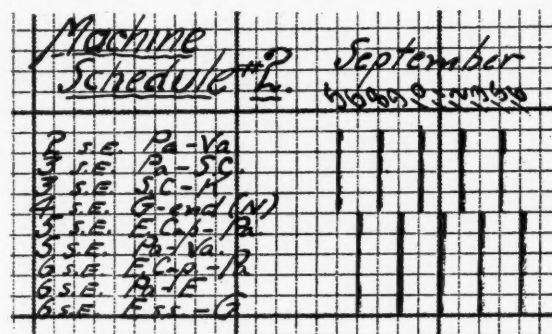 Machine
Schedule #2.
September
2 s.e. Pa-Va
3 s.e. Pa-S.C.
3 s.e. S.C-K
4 s.e. G-end (N)
5 s.e. E.C-p.-Pa
5 s.e. Pa-Va.
6 s.e. E.C-p.-Pa
6 s.e. Pa-E
6 s.e. Ess-G